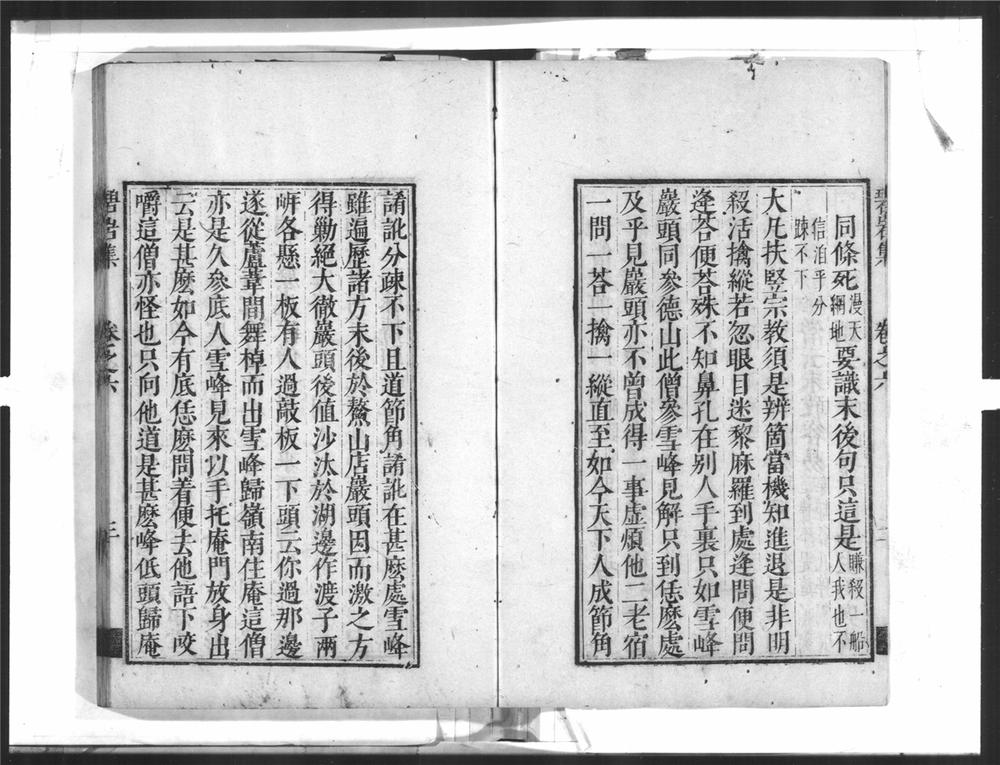 同條死漫天網地要識末後句只這是賺殺一船人我也不
信洎乎分踈不下
大凡扶竪宗教須是辨箇當機知進退是非明
殺活擒縱若忽眼目迷黎麻羅到處逢問便問
逢荅便荅殊不知鼻孔在别人手裏只如雪峰
巖頭同參德山此僧參雪峰見解只到恁麽處
及乎見巖頭亦不曾成得一事虛煩他二老宿
一問一荅一擒一縱直至如今天下人成節角
誵訛分疎不下且道節角誵訛在甚麽處雪峰
雖遍歷諸方末後於鰲山店巖頭因而激之方
得勦絕大徹巖頭後值沙汰於湖邊作渡子兩
岍各懸一板有人過敲板一下頭云你過那邊
遂從蘆葦間舞棹而出雪峰歸嶺南住庵這僧
亦是久參底人雪峰見來以手托庵門放身出
云是甚麽如今有底恁麽問着便去他語下咬
嚼這僧亦怪也只向他道是甚麽峰低頭歸庵
碧岩集 卷之六 三